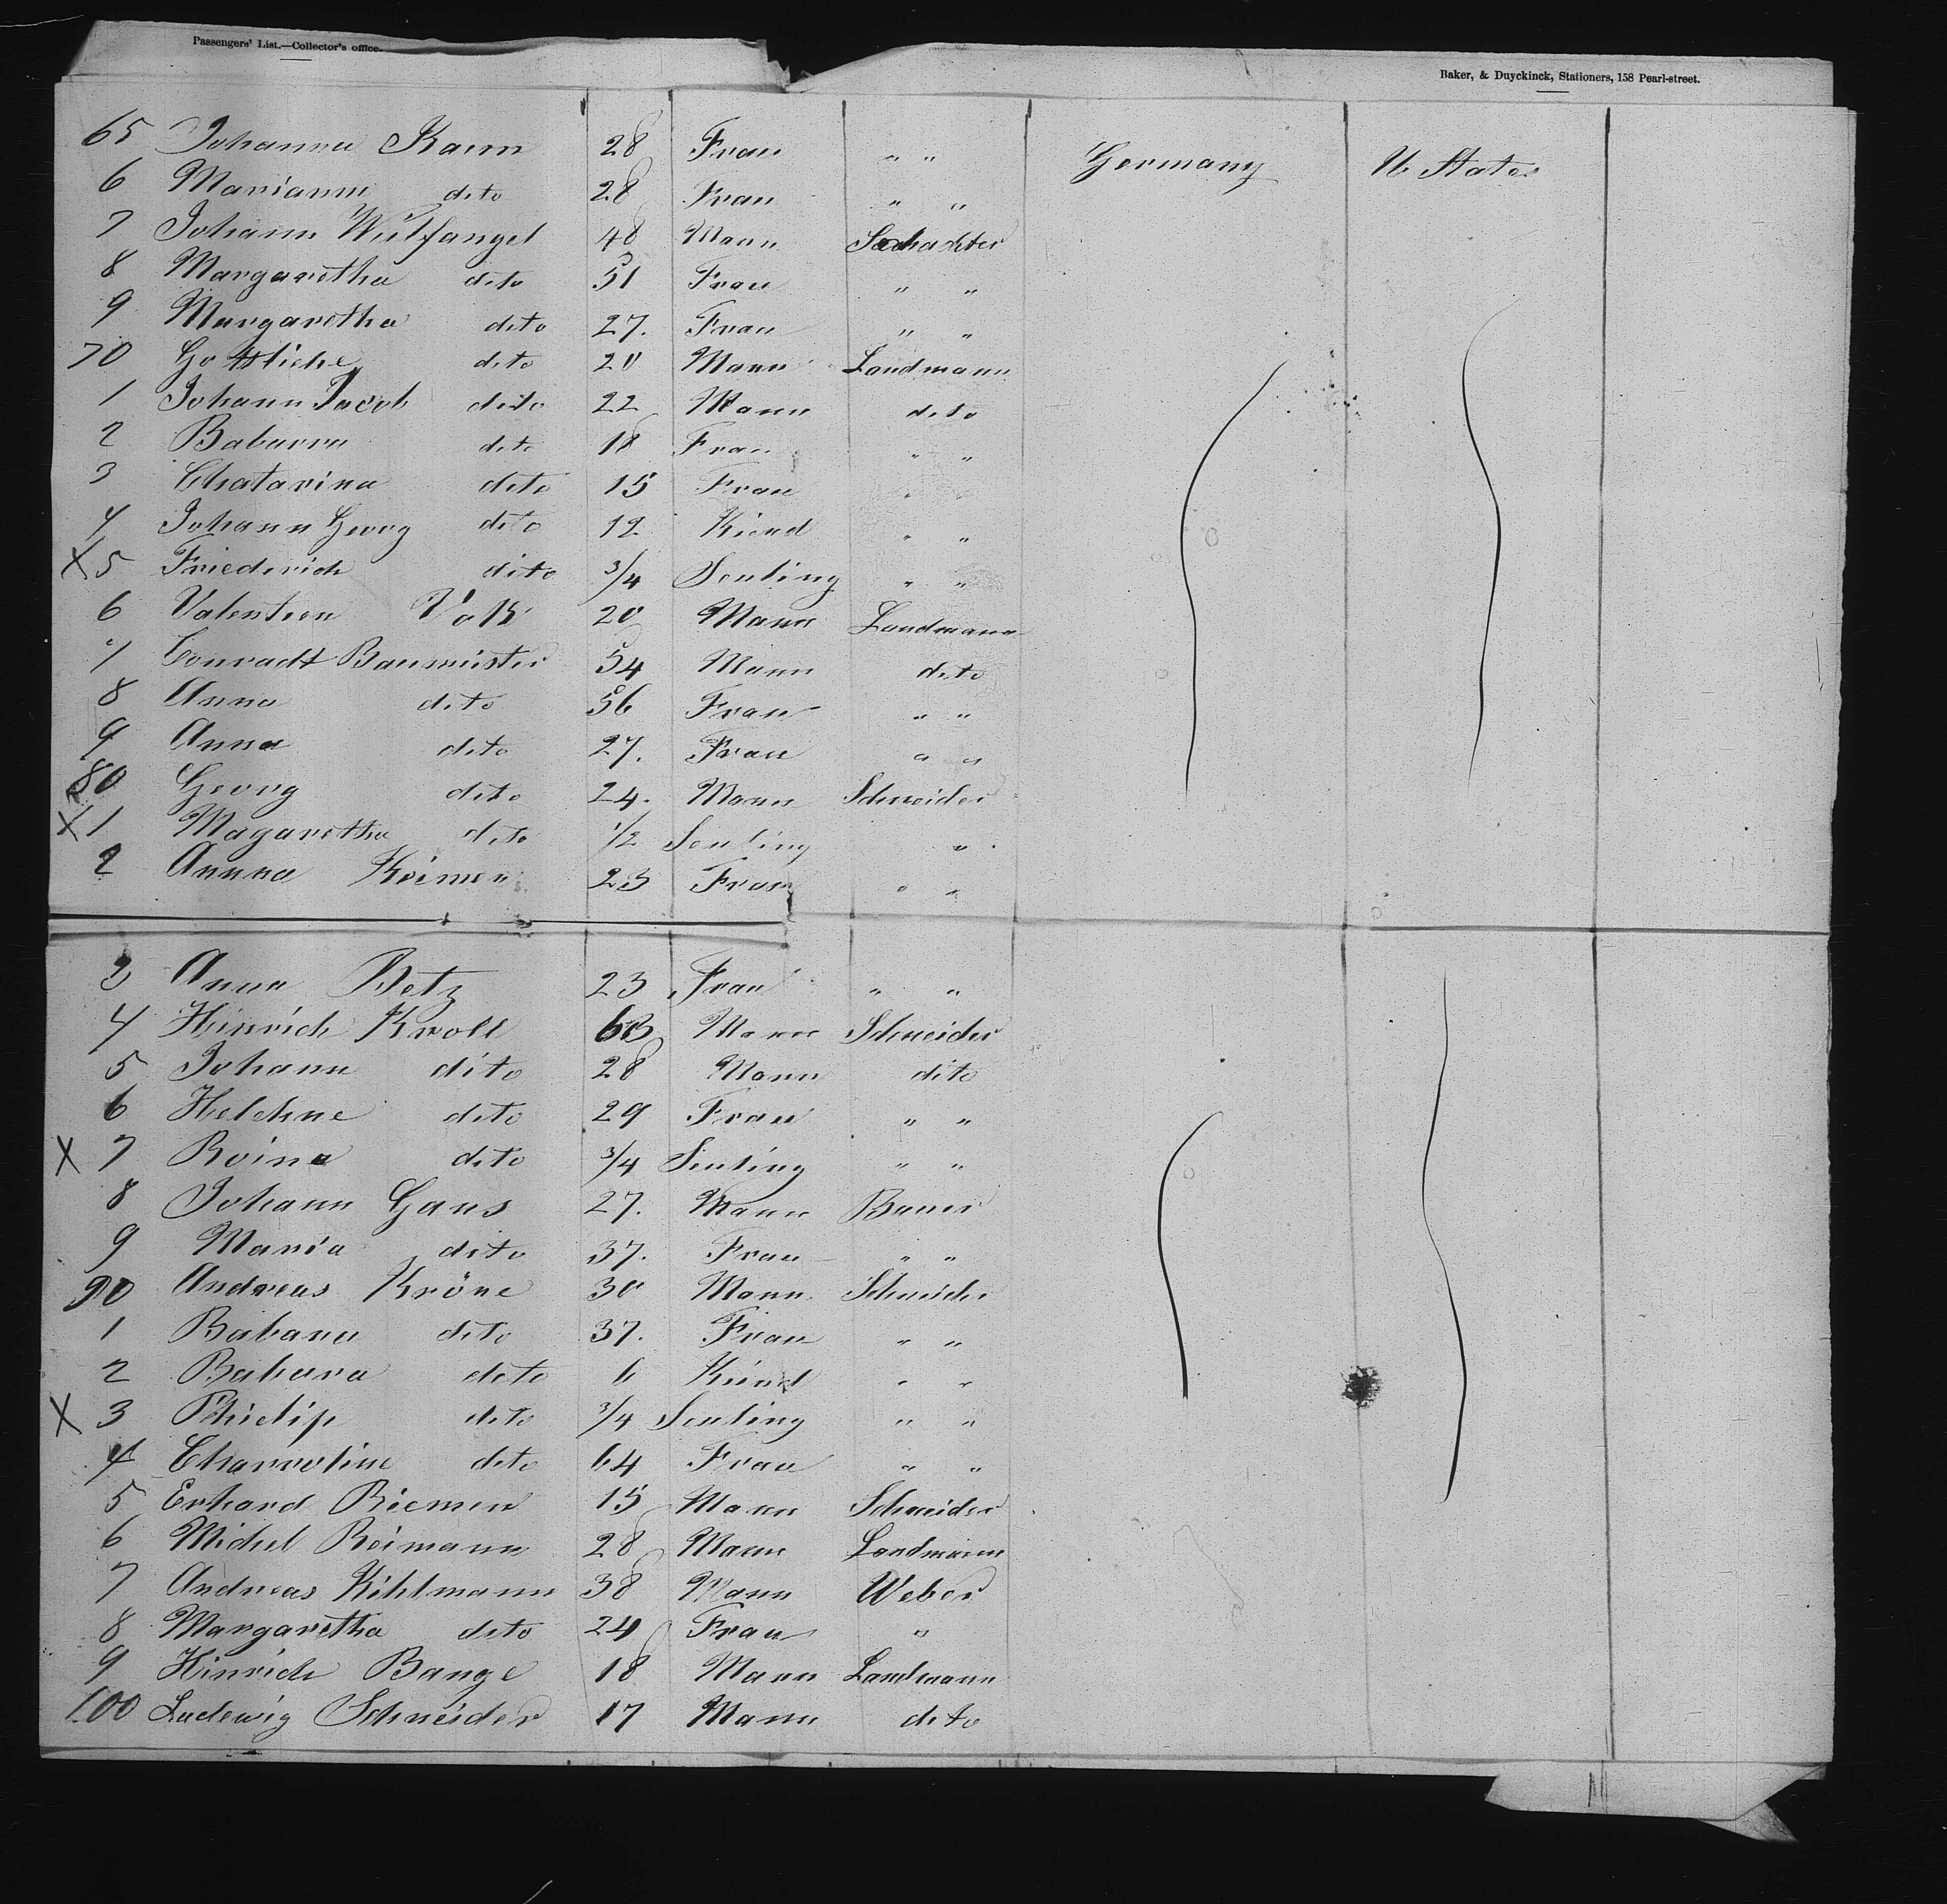 Passengers' List.—Collector's office.
Baker, & Duyckinck, Stationers, 158 Pearl-street.
65 Johanna Kaun 28 Frau " " Germany U States
6 Mariann dito 28 Frau " "
7 Johann Wülfangel 48 Mann
8 Margaretha dito 51 Frau " "
9 Margaretha dito 27. Frau " "
70 Gottliebe dito 20 Mann Landmann
1 Johann Jacob dito 22 Mann dito
2 Babarra dito 18 Frau " "
3 Chatarina dito 15 Frau " "
4 Johann Georg dito 12 Kiend " "
X 5 Friederich dito 3/4 Seuling " "
6 Valentien Volk 20 Mann Landmann
7 Conradt Baumeister 54 Mann dito
8 Anna dito 56 Frau " "
9 Anna dito 27. Frau " "
80 Georg dito 24. Mann Schneider
X 1 Magaretha dito 1/2 Seuling "
2 Annna 23 Frau " "
3 Anna Betz 23 Frau " "
4 Heinrich Kroll Mann Schneider
5 Johann dito 28 Mann dito
6 Helehne dito 29 Frau " "
X 7 dito 3/4 Seuling " "
8 Johann Gaus 27. Mann Bauer
9 Maria dito 37. Frau " "
90 Andreas Kröne 30 Mann Schneider
1 Babara dito 37. Frau " "
2 Babara dito 6 Kiend " "
X 3 Philip dito 3/4 Seuling " "
4 Charroline dito 64 Frau " "
5 Erhard Riemen 15 Mann Schneider
6 Michel Reimann 28 Mann Landmann
7 Andreas Kihlmann 38 Mann Weber
8 Margaretha dito 24 Frau "
9 Hinrich Bange 18 Mann Landmann
100 Ludewig Schneider 17 Mann dito